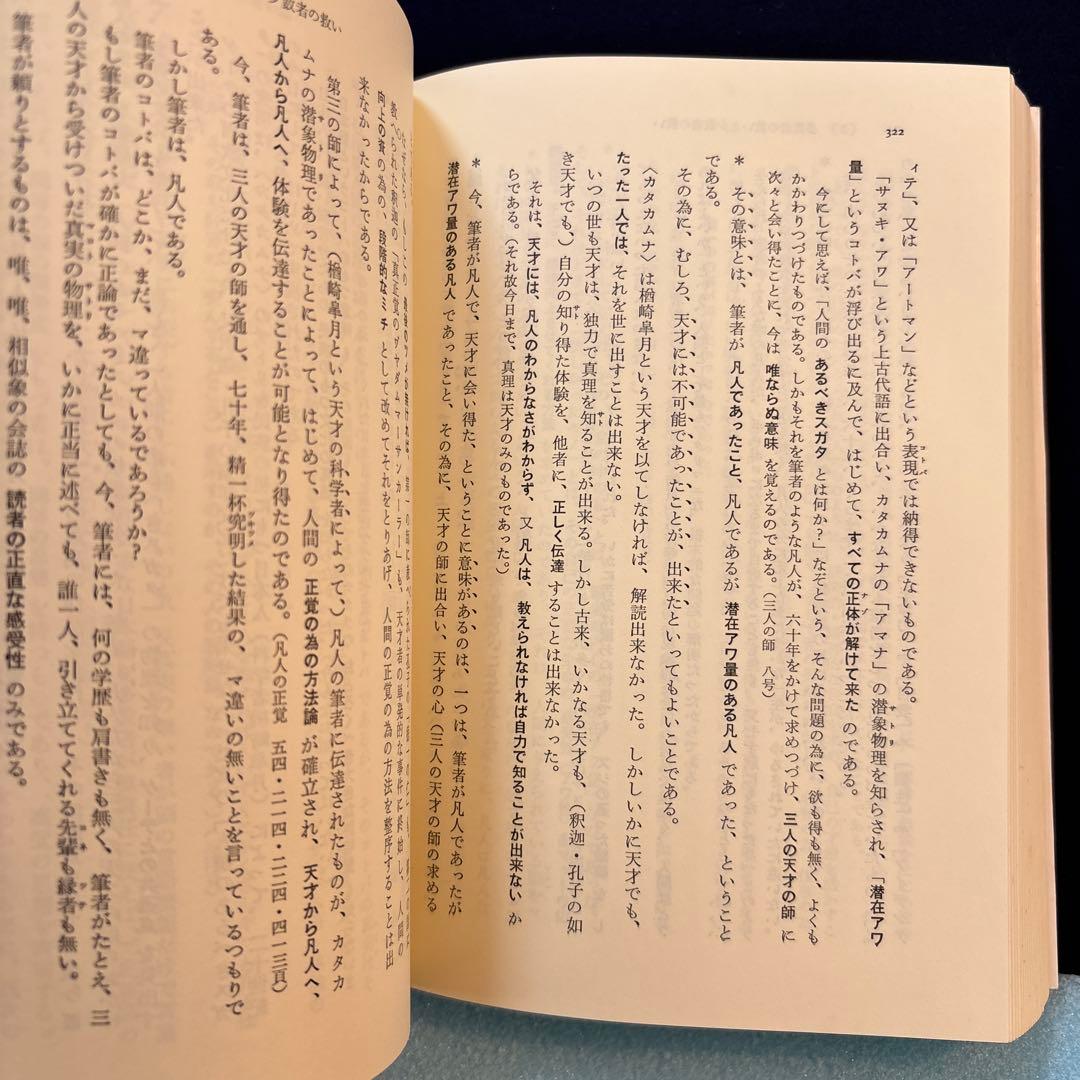 322
ィテ」、又は「アートマン」などという表現では納得できないものである。
「サヌキ・アワ」という上古代語に出合い、カタカムナの「アマナ」の潜象物理を知らされ、「潜在アワ
量」というコトバが浮び出るに及んで、はじめて、すべての正体が解けて来た のである。
今にして思えば、「人間の あるべきスガタ とは何か?」なぞという、そんな問題の為に、欲も得も無く、よくも
かかわりつづけたものである。しかもそれを筆者のような凡人が、六十年をかけて求めつづけ、三人の天才の師 に
次々と会い得たことに、今は 唯ならぬ意味 を覚えるのである。(三人の師 八号)
* その意味とは、筆者が 凡人であったこと、凡人であるが 潜在アワ量のある凡人 であった、ということ
である。
その為に、むしろ、天才には不可能であったことが、出来たといってもよいことである。
〈カタカムナ〉は楢崎皐月という天才を以てしなければ、解読出来なかった。しかしいかに天才でも、
たった一人では、それを世に出すことは出来ない。
いつの世も天才は、独力で真理を知ることが出来る。しかし古来、いかなる天才も、(釈迦・孔子の如
き天才でも、)自分の知り得た体験を、他者に、正しく伝達 することは出来なかった。
それは、天才には、凡人のわからなさがわからず、又 凡人は、教えられなければ自力で知ることが出来ない か
らである。(それ故今日まで、真理は天才のみのものであった。)
* 今、筆者が凡人で、天才に会い得た、ということに意味があるのは、一つは、筆者が凡人であったが
潜在アワ量のある凡人 であったこと、その為に、天才の師に出合い、天才の心(三人の天才の師の求める
数者の救い
教へられた釈迦の「真正覚のヴヤダムマーサンカーラー」も、天才者の単発的な事件に終始し、人間の
向上の資の為の、段階的なミチ として改めてそれをとりあげ、人間の正覚の為の方法を整序することは出
来なかったからである。
第三の師によって、(楢崎皐月という天才の科学者によって、)凡人の筆者に伝達されたものが、カタカ
ムナの潜象物理であったことによって、はじめて、人間の 正覚の為の方法論 が確立され、天才から凡人へ、
凡人から凡人へ、体験を伝達することが可能となり得たのである。(凡人の正覚 五四・二一四・二二四・四一三頁)
今、筆者は、三人の天才の師を通し、七十年、精一杯究明した結果の、マ違いの無いことを言っているつもりで
ある。
しかし筆者は、凡人である。
筆者のコトバは、どこか、まだ、マ違っているであろうか?
もし筆者のコトバが確かに正論であったとしても、今、筆者には、何の学歴も肩書きも無く、筆者がたとえ、三
人の天才から受けついだ真実の物理を、いかに正当に述べても、誰一人、引き立ててくれる先輩も縁者も無い。
筆者が頼りとするものは、唯、唯、相似象の会誌の 読者の正直な感受性 のみである。